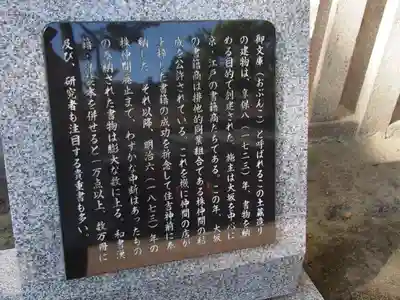 御文庫(おぶんこ)と呼ばれるこの土蔵造り
の建物は、享保八(一七二三)年、書物を納
める目的で創建された。施主は大坂を中心に
京・江戸の書籍商たちである。この年、大坂
の書籍商は排他的同業組合である株仲間の結
成を公許されている。これを機に仲間の店が
上梓した書籍の成功を祈念して住吉神前に奉
納した。それ以降、明治六(一八七三)年の
株仲間廃止まで、わずかな中断はあったもの
の奉納された書物は膨大な数に上る。和書漢
籍・
を併せると一万点以上、数万冊に
及び、研究者も注目する貴重書も多い。